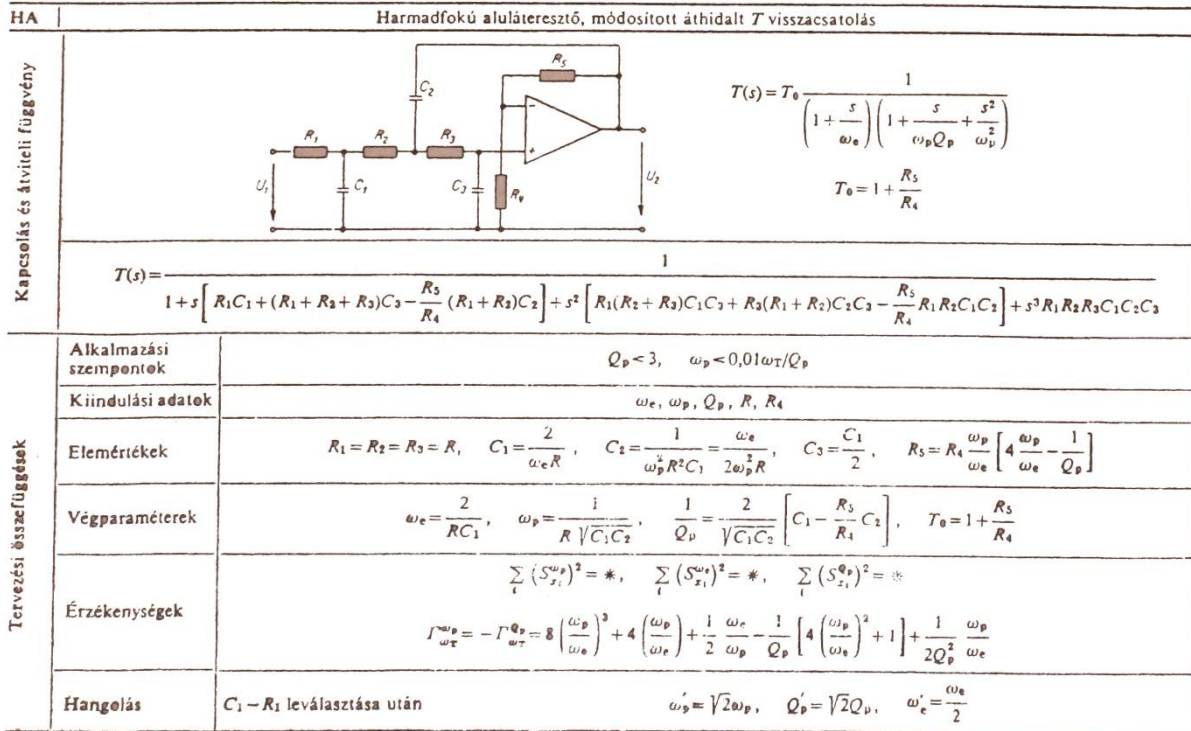 HA
Harmadfokú aluláteresztő, módosított áthidalt T visszacsatolás
Kapcsolás és átviteli függvény
R₅
C₂
R₁
R₂
R₃
−
+
U₁
C₁
C₃
R₄
U₂
T(s) = T₀ 1 / ((1 + s/ωₑ)(1 + s/(ωₚQₚ) + s²/ωₚ²))
T₀ = 1 + R₅/R₄
T(s) = 1 / (1 + s[R₁C₁ + (R₁ + R₂ + R₃)C₃ − R₅/R₄ (R₁ + R₂)C₂] + s²[R₁(R₂ + R₃)C₁C₃ + R₃(R₁ + R₂)C₂C₃ − R₅/R₄ R₁R₂C₁C₂] + s³R₁R₂R₃C₁C₂C₃)
Tervezési összefüggések
Alkalmazási szempontok
Qₚ < 3, ωₚ < 0,01ω_T/Qₚ
Kiindulási adatok
ωₑ, ωₚ, Qₚ, R, R₄
Elemértékek
R₁ = R₂ = R₃ = R, C₁ = 2/(ωₑR), C₂ = 1/(ωₚ²R²C₁) = ωₑ/(2ωₚ²R), C₃ = C₁/2, R₅ = R₄ ωₚ/ωₑ [4 ωₚ/ωₑ − 1/Qₚ]
Végparaméterek
ωₑ = 2/(RC₁), ωₚ = 1/(R√(C₁C₂)), 1/Qₚ = 2/√(C₁C₂) [C₁ − R₅/R₄ C₂], T₀ = 1 + R₅/R₄
Érzékenységek
∑ᵢ (S_{xᵢ}^{ωₚ})² = *, ∑ᵢ (S_{xᵢ}^{ωₑ})² = *, ∑ᵢ (S_{xᵢ}^{Qₚ})² = *
Γ_{ω_T}^{ωₚ} = −Γ_{ω_T}^{Qₚ} = 8(ωₚ/ωₑ)³ + 4(ωₚ/ωₑ) + 1/2 ωₑ/ωₚ − 1/Qₚ [4(ωₚ/ωₑ)² + 1] + 1/(2Qₚ²) ωₚ/ωₑ
Hangolás
C₁–R₁ leválasztása után
ω′ₚ = √2ωₚ, Q′ₚ = √2Qₚ, ω′ₑ = ωₑ/2